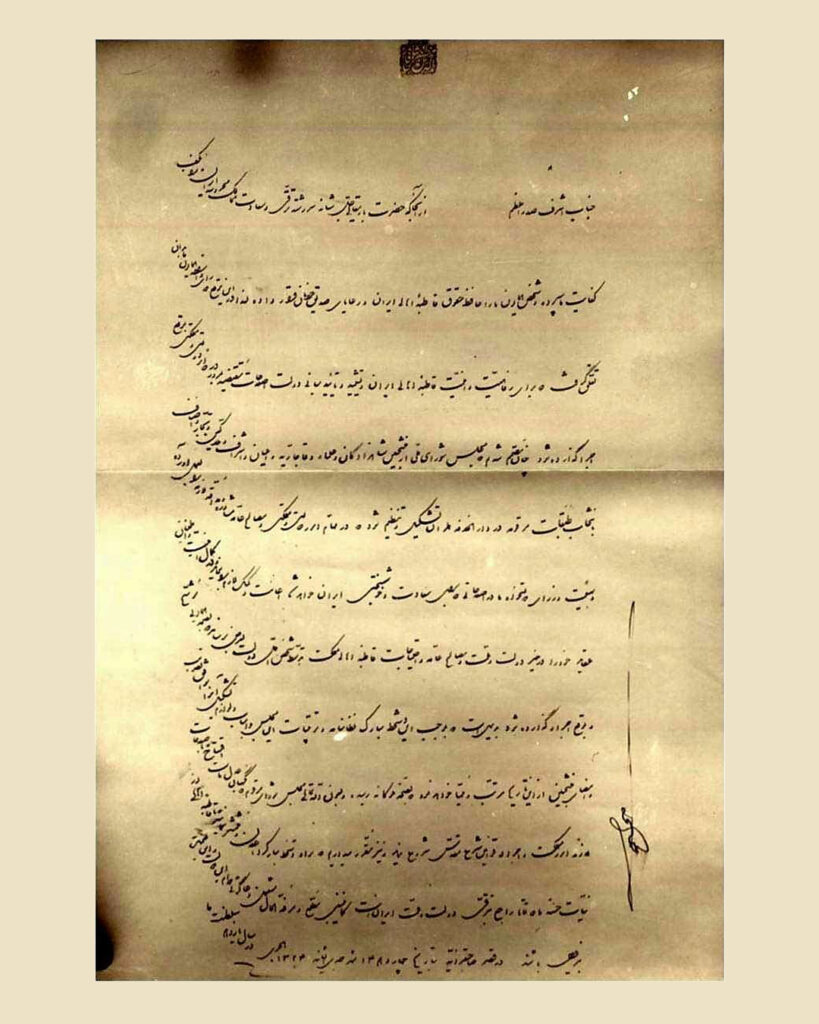 جناب اشرف صدراعظم
از آنجا که حضرت باریتعالی جل شانه سررشته ترقی و سعادت ممالک محروسه ایران را بکف
کفایت ما سپرده و شخص همایون ما را حافظ حقوق قاطبه اهالی ایران و رعایای صدیق خودمان قرار داده لهذا در این موقع که رای و اراده همایون ما بدان
تعلق گرفت که برای رفاهیت و امنیت قاطبه اهالی ایران و تشیید و تایید مبانی دولت اصلاحات مقتضیه بمرور در دوائر دولتی و مملکتی بموقع
اجرا گذارده شود چنان مصمم شدیم که مجلس شورای ملی از منتخبین شاهزادگان و علماء و قاجاریه و اعیان و اشراف و ملاکین و تجار و اصناف
بانتخاب طبقات مرقومه در دارالخلافه طهران تشکیل و تنظیم شود که در مهام امور دولتی و مملکتی و مصالح عامه مشاوره و مداقه لازمه را بعمل آورده
به هیئت وزرای دولتخواه ما در اصلاحاتی که برای سعادت و خوشبختی ایران خواهد شد اعانت و کمک لازم را بنماید و در کمال امنیت و اطمینان
عقاید خود را در خیر دولت و ملت و مصالح عامه و احتیاجات قاطبه اهالی مملکت بتوسط شخص اول دولت بعرض برساند که بصحه همایونی موشح
و بموقع اجرا گذارده شود بدیهی است که بموجب این دستخط مبارک نظامنامه و ترتیبات این مجلس و اسباب و لوازم تشکیل آنرا موافق تصویب
و امضای منتخبین از این تاریخ مرتب و مهیا خواهد نمود که بصحه ملوکانه رسیده و بعون الله تعالی مجلس شورای مرقوم که نگهبان عدل ماست افتتاح و باصلاحات
لازمه امور مملکت و اجراء قوانین شرع مقدس شروع نماید و نیز مقرر میداریم که سواد دستخط مبارک را اعلان و منتشر نمایید تا قاطبه اهالی از
نیات حسنه ما که تماما راجع بترقی دولت و ملت ایران است کماینبغی مطلع و مرفه الحال مشغول دعاگویی دوام این دولت و این نعمت
بی زوال باشند در قصر صاحبقرانیه بتاریخ چهاردهم شهر جمادی الثانیه ۱۳۲۴ هجری
در سال یازدهم سلطنت ما